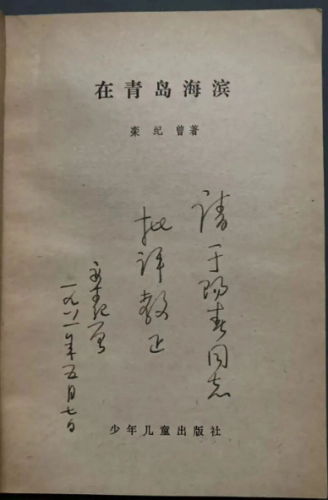 在青岛海滨
栾纪曾著
请于阳春同志
批评教正
栾纪曾
一九八一年五月七日
少年儿童出版社